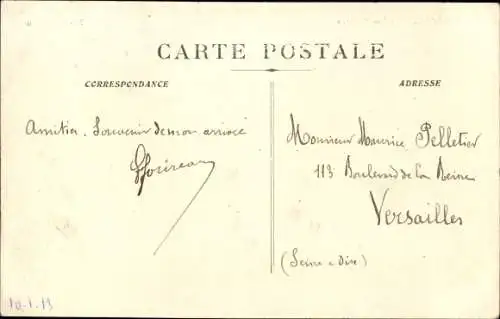 CARTE POSTALE
CORRESPONDANCE
ADRESSE
Amitiés. Souvenir de mon arrivée
Monsieur Maurice Pelletier
113 Boulevard de la Reine
Versailles
(Seine & Oise)
10.1.13